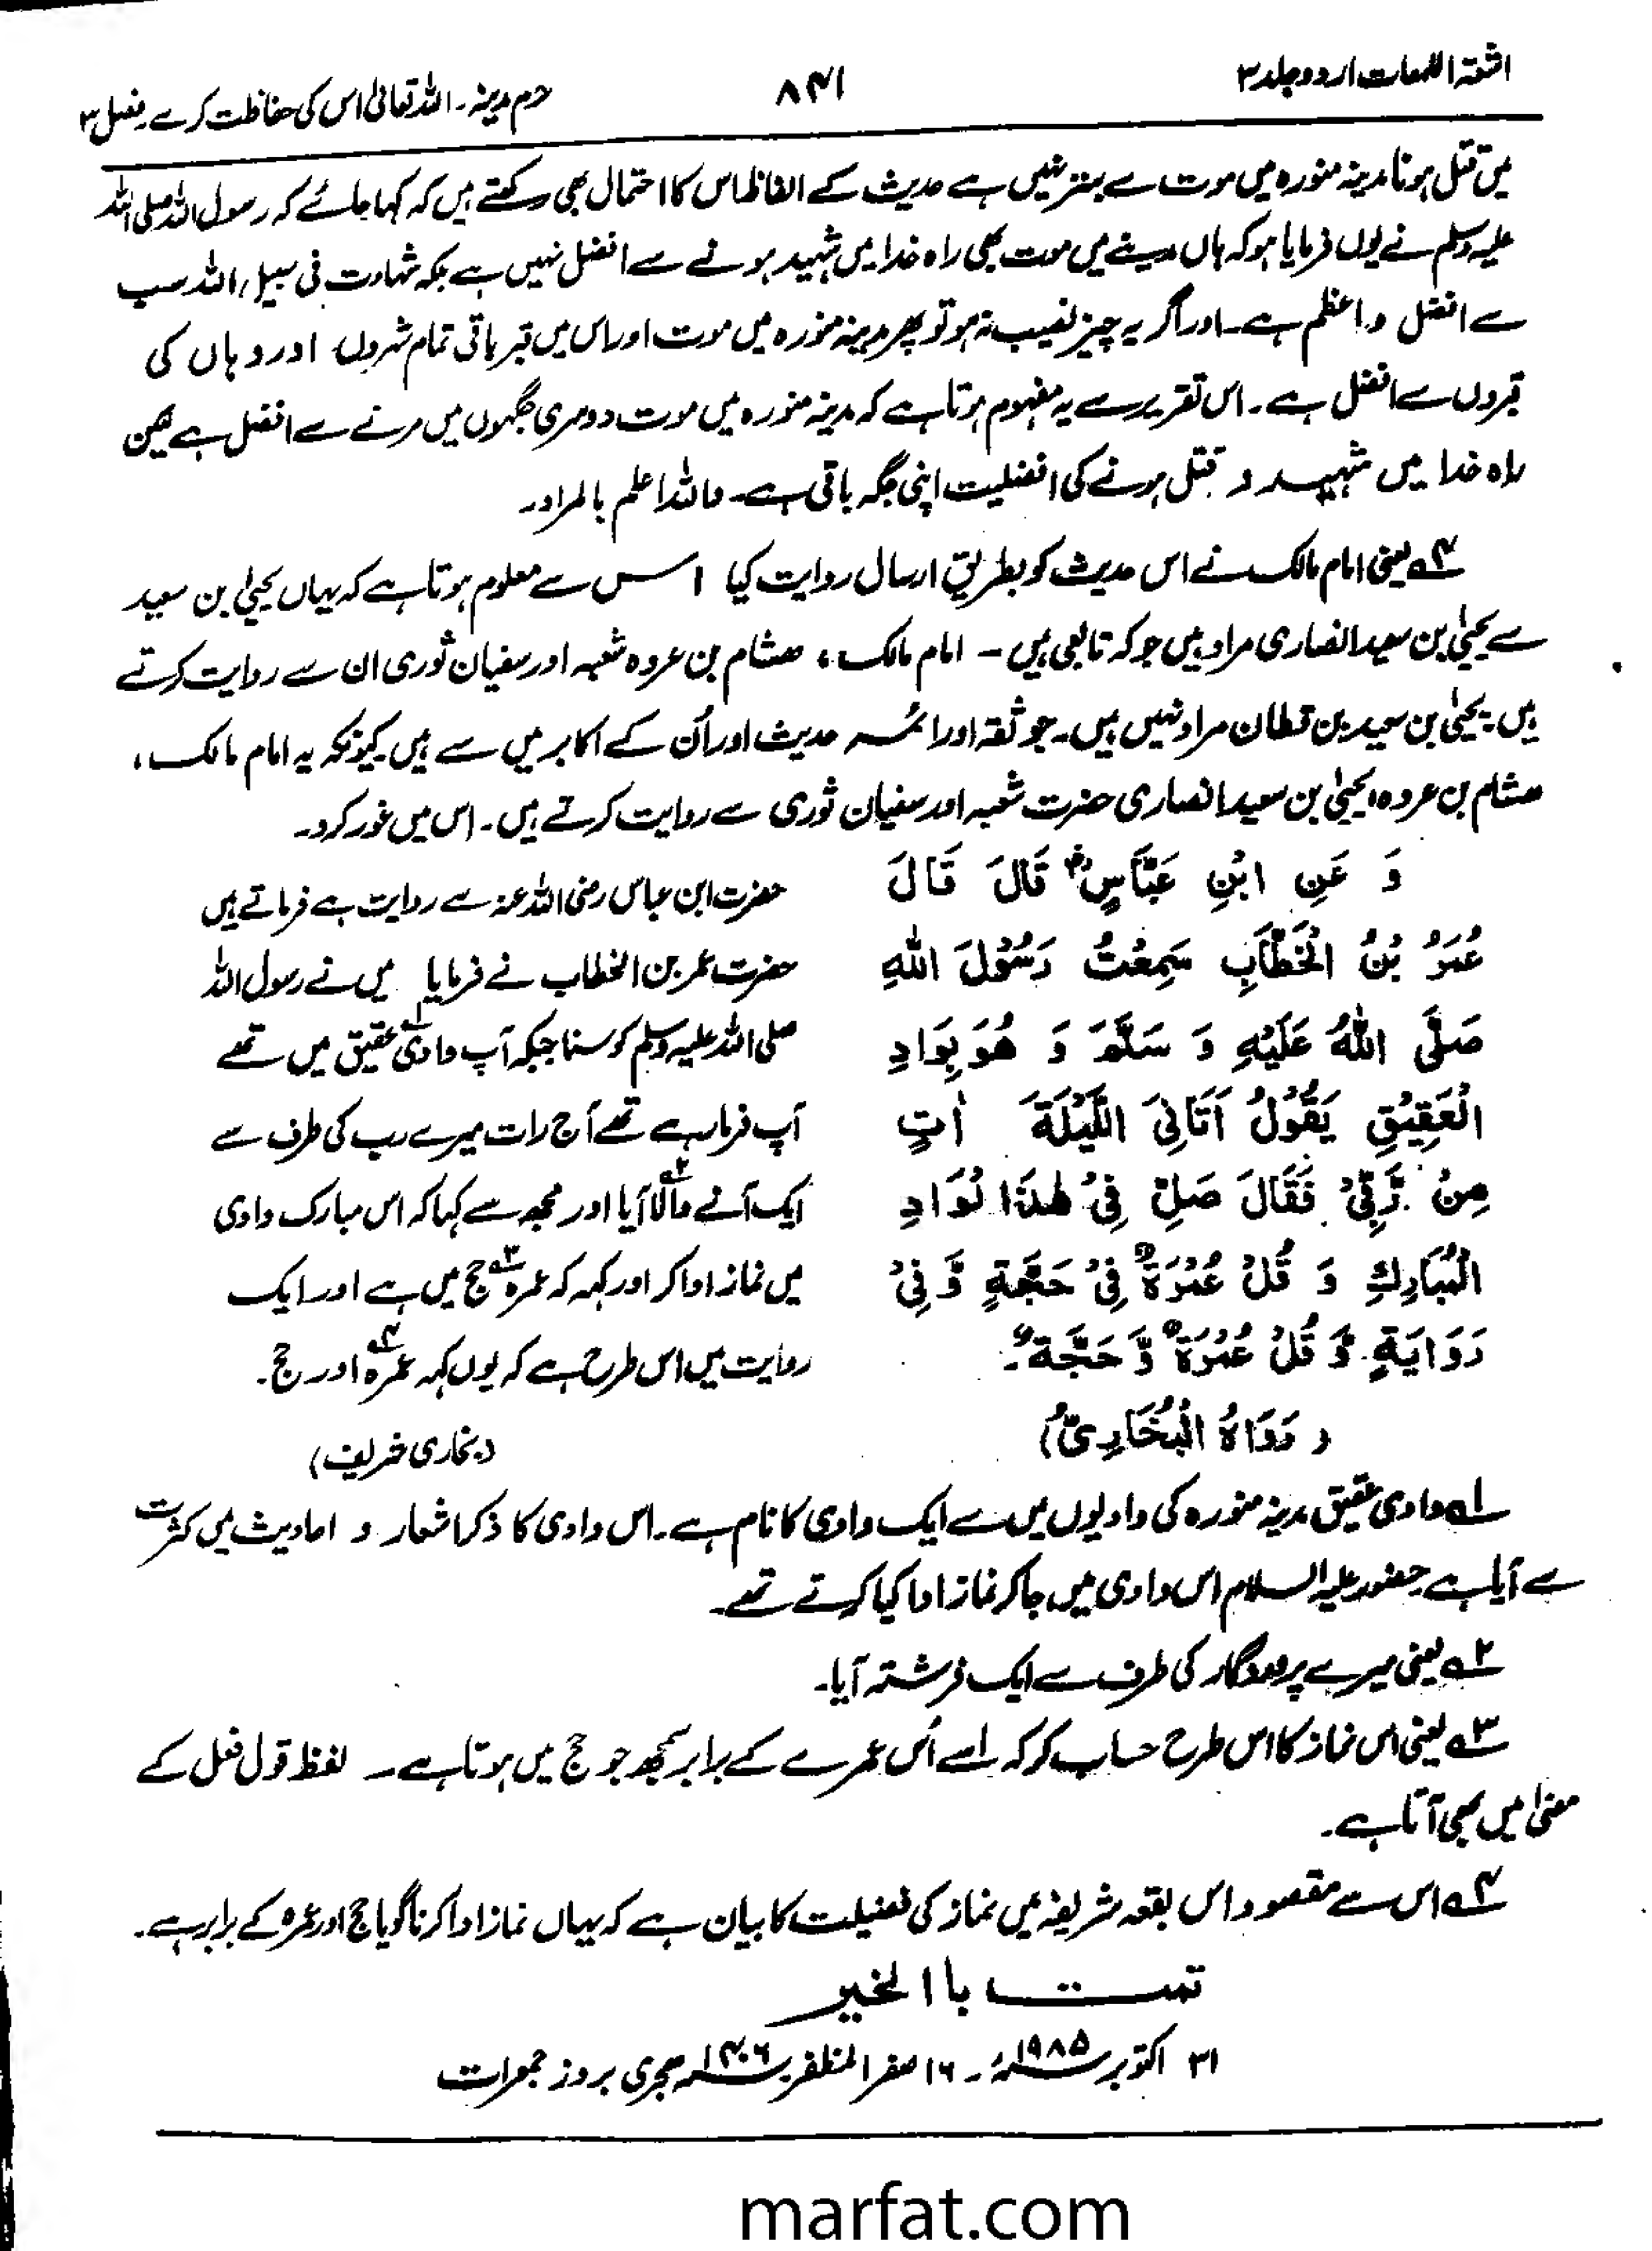 اشعۃ اللمعات اردو جلد ۳
۸۴۱
حرم مدینہ۔ اللہ تعالیٰ اس کی حفاظت کرے فصل ۳
میں قتل ہونا مدینہ منورہ میں موت سے بہتر نہیں ہے حدیث کے الفاظ اس کا احتمال بھی رکھتے ہیں کہ کہا جائے کہ رسول اللہ صلی اللہ
علیہ وسلم نے یوں فرمایا ہو کہ ہاں مدینے میں موت بھی راہ خدا میں شہید ہونے سے افضل نہیں ہے بلکہ شہادت فی سبیل اللہ سب
سے افضل و اعظم ہے۔ اور اگر یہ چیز نصیب نہ ہو تو پھر مدینہ منورہ میں موت اور اس میں قبر باقی تمام شہروں اور وہاں کی
قبروں سے افضل ہے۔ اس تقریر سے یہ مفہوم ہوتا ہے کہ مدینہ منورہ میں موت دوسری جگہوں میں مرنے سے افضل ہے لیکن
راہ خدا میں شہید و قتل ہونے کی افضلیت اپنی جگہ باقی ہے۔ واللہ اعلم بالمراد۔
۴؎ یعنی امام مالک نے اس حدیث کو بطریق ارسال روایت کیا اس سے معلوم ہوتا ہے کہ یہاں یحییٰ بن سعید
سے یحییٰ بن سعید انصاری مراد ہیں جو کہ تابعی ہیں – امام مالک، ھشام بن عروہ شعبہ اور سفیان ثوری ان سے روایت کرتے
ہیں۔ یحییٰ بن سعید بن قطان مراد نہیں ہیں۔ جو ثقہ اور ائمہ حدیث اور اُن کے اکابر میں سے ہیں کیونکہ یہ امام مالک،
ھشام بن عروہ، یحییٰ بن سعید انصاری حضرت شعبہ اور سفیان ثوری سے روایت کرتے ہیں۔ اس میں غور کرو۔
وَ عَنِ ابْنِ عَبَّاسٍ قَالَ قَالَ
عُمَرُ بْنُ الْخَطَّابِ سَمِعْتُ رَسُوْلَ اللهِ
صَلَّى اللهُ عَلَيْهِ وَ سَلَّمَ وَ هُوَ بِوَادِ
الْعَقِيْقِ يَقُوْلُ اَتَانِيَ اللَّيْلَةَ اٰتٍ
مِنْ رَّبِّيْ فَقَالَ صَلِّ فِيْ هٰذَا لْوَادِ
الْمُبَارِكِ وَ قُلْ عُمْرَةٌ فِيْ حَجَّةٍ وَّ فِيْ
رَوَايَةٍ وَّ قُلْ عُمْرَةٌ وَّ حَجَّةٌ۔
(رَوَاهُ الْبُخَارِيُّ)
حضرت ابن عباس رضی اللہ عنہ سے روایت ہے فرماتے ہیں
حضرت عمر بن الخطاب نے فرمایا میں نے رسول اللہ
صلی اللہ علیہ وسلم کو سنا جبکہ آپ وادی۱؎ عقیق میں تھے
آپ فرما رہے تھے آج رات میرے رب کی طرف سے
ایک آنے والا۲؎ آیا اور مجھ سے کہا کہ اس مبارک وادی
میں نماز ادا کر اور کہہ کہ عمرہ۳؎ حج میں ہے اور ایک
روایت میں اس طرح ہے کہ یوں کہہ عمرہ۴؎ اور حج۔
(بخاری شریف)
۱؎ وادی عقیق مدینہ منورہ کی وادیوں میں سے ایک وادی کا نام ہے۔ اس وادی کا ذکر اشعار و احادیث میں کثرت
سے آیا ہے حضور علیہ السلام اس وادی میں جا کر نماز ادا کیا کرتے تھے۔
۲؎ یعنی میرے پروردگار کی طرف سے ایک فرشتہ آیا۔
۳؎ یعنی اس نماز کا اس طرح حساب کر کہ اسے اُس عمرے کے برابر سمجھ جو حج میں ہوتا ہے۔ لفظ قول فعل کے
معنیٰ میں بھی آتا ہے۔
۴؎ اس سے مقصود اس بقعہ شریفہ میں نماز کی فضیلت کا بیان ہے کہ یہاں نماز ادا کرنا گویا حج اور عمرہ کے برابر ہے۔
تمت باالخیر
۳۱ اکتوبر ۱۹۸۵ء۔ ۱۶ صفر المظفر ۱۴۰۶ ہجری بروز جمعرات
marfat.com